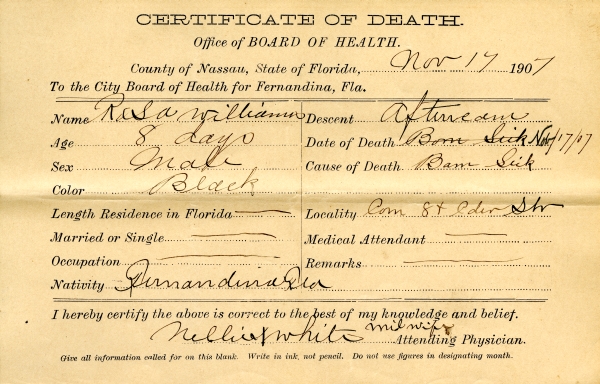 CERTIFICATE OF DEATH.
Office of BOARD OF HEALTH.
County of Nassau, State of Florida, Nov 17 1907
To the City Board of Health for Fernandina, Fla.
Name Rosa Williams
Descent
Age 8 days
Date of Death Born Sick Nov/17/07
Sex Male
Cause of Death Born Sick
Color Black
Length Residence in Florida
Locality Corn 8t
Married or Single
Medical Attendant
Occupation
Remarks
Nativity Fernandina
I hereby certify the above is correct to the best of my knowledge and belief.
Nellie X White midwife Attending Physician.
Give all information called for on this blank. Write in ink, not pencil. Do not use figures in designating month.